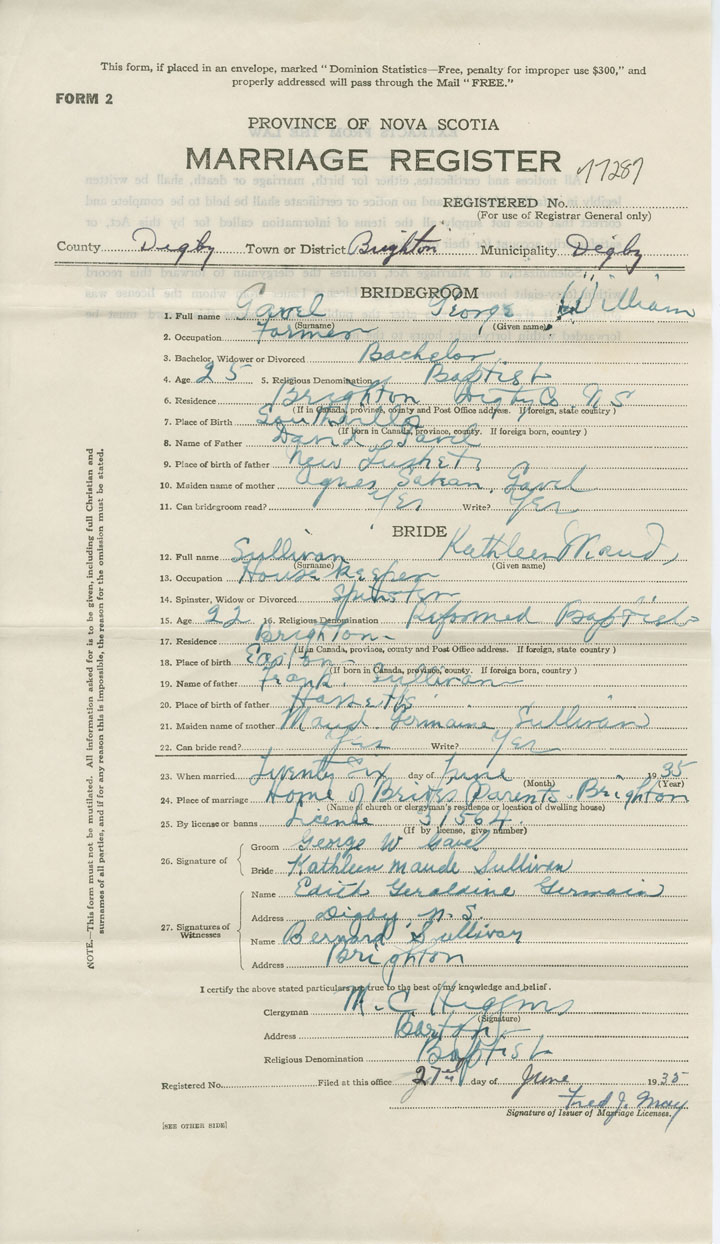 This form, if placed in an envelope, marked "Dominion Statistics—Free, penalty for improper use $300," and
properly addressed will pass through the Mail "FREE."
FORM 2
PROVINCE OF NOVA SCOTIA
MARRIAGE REGISTER 77287
REGISTERED No.
(For use of Registrar General only)
County Digby Town or District Brighton Municipality Digby
BRIDEGROOM
1. Full name Gavel George William
(Surname) (Given name)
2. Occupation Farmer
3. Bachelor, Widower or Divorced Bachelor
4. Age 25 5. Religious Denomination Baptist
6. Residence Brighton Digby Co. N S
(If in Canada, province, county and Post Office address. If foreign, state country)
7. Place of Birth Southville
(If born in Canada, province, county. If foreign born, country)
8. Name of Father David Gavel
9. Place of birth of father New Tusket
10. Maiden name of mother Agnes Gavel
11. Can bridegroom read? Yes Write? Yes
BRIDE
12. Full name Sullivan Kathleen Maud
(Surname) (Given name)
13. Occupation House keeper
14. Spinster, Widow or Divorced Spinster
15. Age 22 16. Religious Denomination Reformed Baptist
17. Residence Brighton
(If in Canada, province, county and Post Office address. If foreign, state country)
18. Place of birth
(If born in Canada, province, county. If foreign born, country)
19. Name of father Frank Sullivan
20. Place of birth of father
21. Maiden name of mother Maud Germaine Sullivan
22. Can bride read? Yes Write? Yes
23. When married Twenty Six day of June 1935
(Month) (Year)
24. Place of marriage Home of Brides Parents. Brighton
(Name of church or clergyman's residence or location of dwelling house)
25. By license or banns License 31564
(If by license, give number)
26. Signature of Groom George W Gavel
Bride Kathleen Maude Sullivan
27. Signatures of Witnesses Name Edith Geraldine Germain
Address Digby N. S.
Name Bernard Sullivan
Address Brighton
I certify the above stated particulars are true to the best of my knowledge and belief.
Clergyman M. C. Higgins
(Signature)
Address Barton
Religious Denomination Baptist
Registered No. Filed at this office 27 day of June 1935
Fred J. May
Signature of Issuer of Marriage Licenses.
[SEE OTHER SIDE]
NOTE.—This form must not be mutilated. All information asked for is to be given, including full Christian and
surnames of all parties, and if for any reason this is impossible, the reason for the omission must be stated.